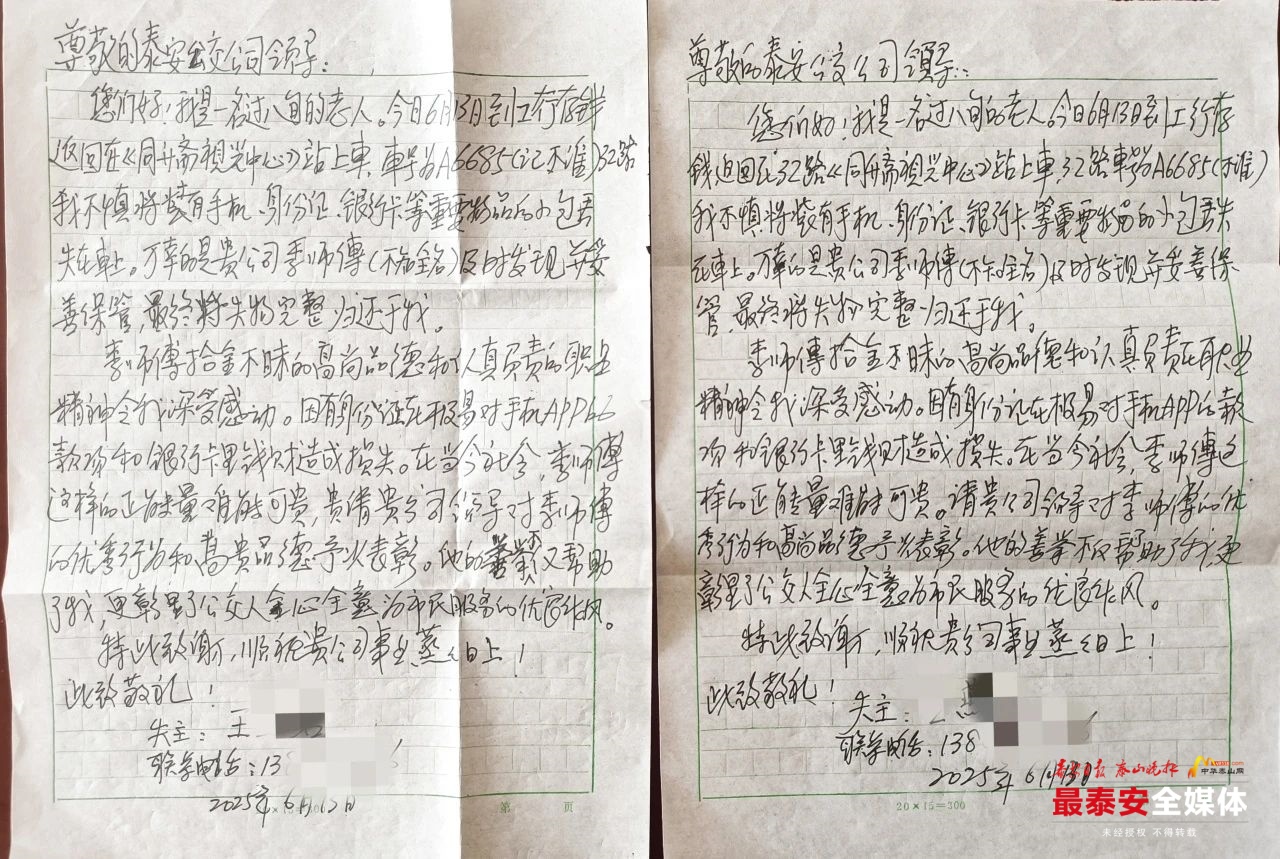 尊敬的泰安公交公司领导：
您们好！我是一名过八旬的老人。今日6月13日到工行存钱
返回在《同升斋视光中心》站上車，車号为A6685(记不准)32路
我不慎将装有手机、身份证、银行卡等重要物品的小包丢
失在車上。万幸的是贵公司李师傅(不知全名)及时发现并妥
善保管，最终将失物完整归还于我。
李师傅拾金不昧的高尚品德和认真负责的职业
精神令我深受感动。因有身份证在极易对手机APP的
款项和银行卡里钱财造成损失。在当今社会，李师傅
这样的正能量难能可贵，贵请贵公司领导对李师傅
的优秀行为和高贵品德予以表彰。他的善举不仅帮助
了我，更彰显了公交人全心全意为市民服务的优良作风。
特此致谢，顺祝贵公司事业蒸蒸日上！
此致敬礼！
失主：王
联系电话：13
2025年6月12日
第 页
尊敬的泰安公交公司领导：
您们好！我是一名过八旬的老人。今日6月13日到工行存
钱返回在32路《同升斋视光中心》站上車，32路車号为A6685(不准)
我不慎将装有手机、身份证、银行卡等重要物品的小包丢失
在車上。万幸的是贵公司李师傅(不知全名)及时发现并妥善保
管，最终将失物完整归还于我。
李师傅拾金不昧的高尚品德和认真负责在职业
精神令我深受感动。因有身份证在极易对手机APP的款
项和银行卡里钱财造成损失。在当今社会，李师傅这
样的正能量难能可贵。请贵公司领导对李师傅的优
秀行为和高尚品德予以表彰。他的善举不仅帮助了我，更
彰显了公交人全心全意为市民服务的优良作风。
特此致谢，顺祝贵公司事业蒸蒸日上！
此致敬礼！
失主：
联系电话：138
2025年6月13日
20×15=300
泰安日报 泰山晚报 中华泰山网
最泰安全媒体
未经授权 不得转载